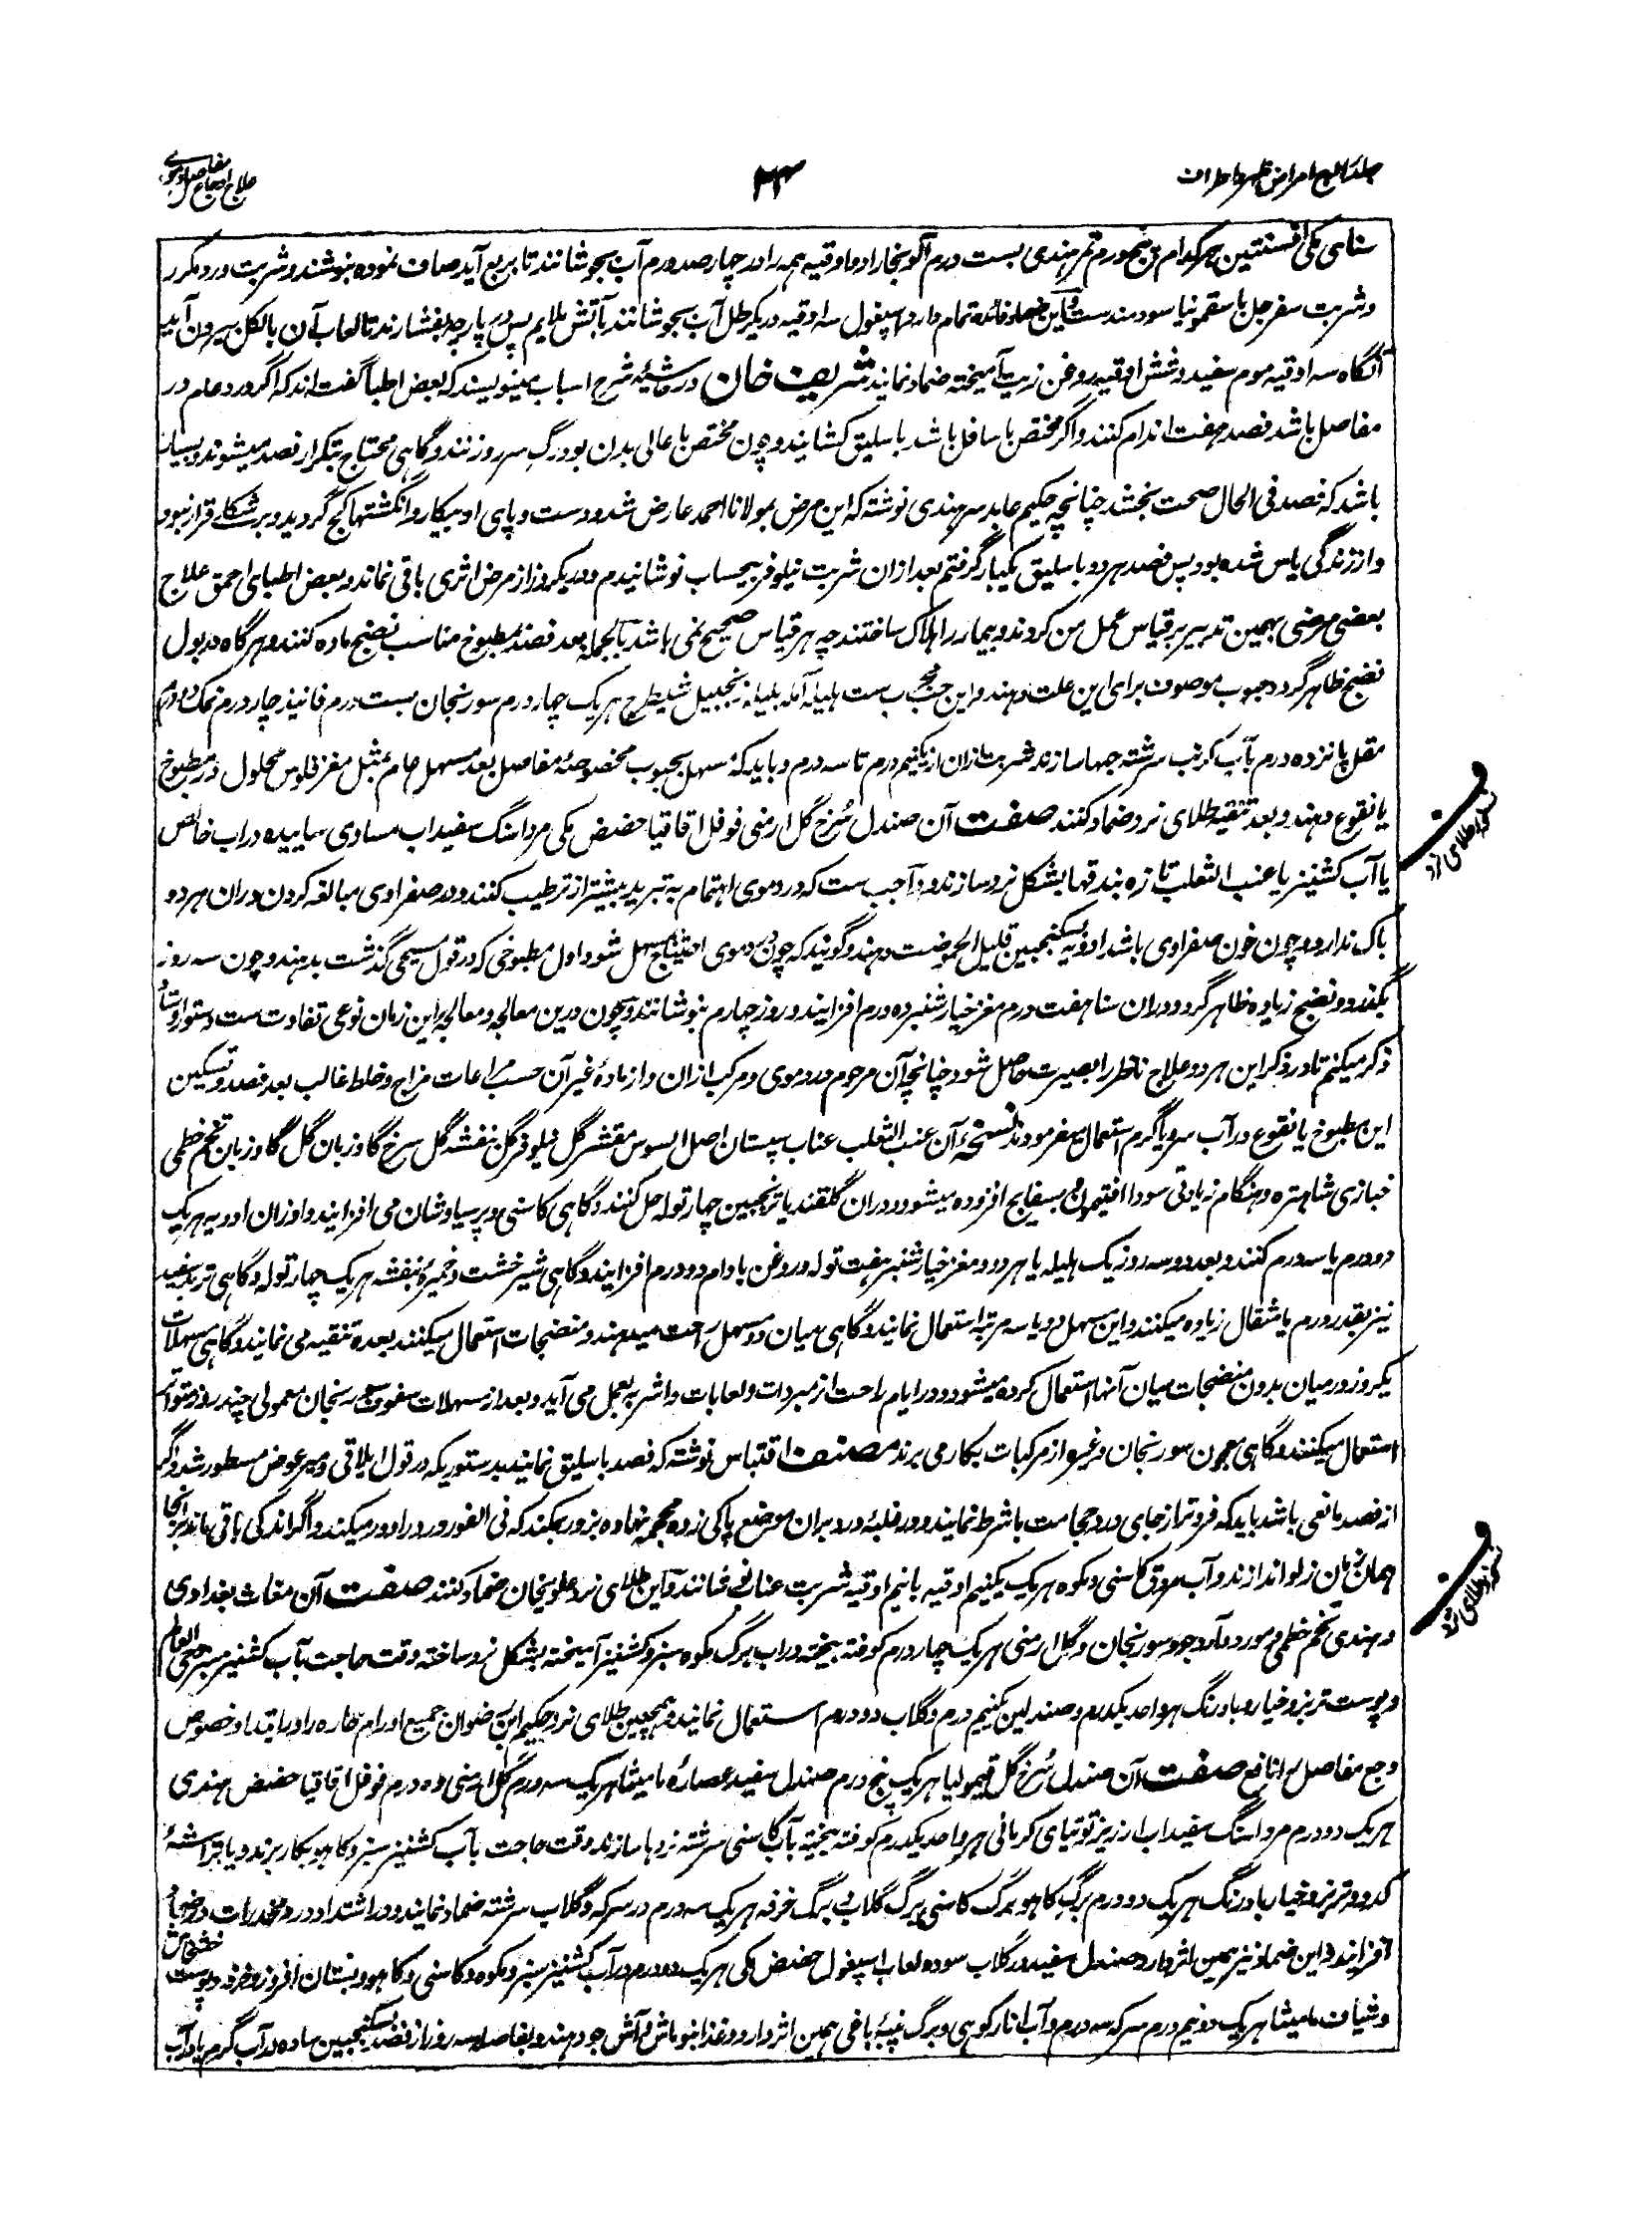 جلد رابع امراض ظهر و اطراف
۲۴
علاج اوجاع مفاصل دموی
سنای مکی افسنتین هر کدام پنج درم تمر هندی بست درم آلو بخارا دو اوقیه همه را در چهار صد درم آب بجوشانند تا بربع آید صاف نموده بنوشند و شربت ورد مکرر
و شربت سفرجل با سقمونیا سودمندست و این ضماد فائده تمام دارد اسپغول سه اوقیه در یکرطل آب بجوشانند بآتش ملایم پس در پارچه بفشارند تا لعاب آن بالکل بیرون آید
آنگاه سه اوقیه موم سفید و شش اوقیه روغن زیت آمیخته ضماد نمایند شریف خان در حاشیه شرح اسباب مینویسند که بعض اطبا گفته اند که اگر درد عام در
مفاصل باشد فصد هفت اندام کنند و اگر مختص با سافل باشد باسلیق کشایند و چون مختص باعالی بدن بود رگ سرو زنند و گاهی محتاج بتکرار فصد میشوند و بسیار
باشد که فصد فی الحال صحت بخشد چنانچه حکیم عابد سرهندی نوشته که این مرض بمولانا احمد عارض شد و دست و پای او بیکار و انگشتها کج گردید و بر شکلی قرار نبود
و از زندگی یاس شده بود پس فصد هر دو باسلیق یکبار گرفتم بعد ازان شربت نیلوفر بیحساب نوشانیدم در یکروز از مرض اثری باقی نماند و بعض اطبای احمق علاج
بعضی مرضی بهمین تدبیر بر قیاس عمل من کردند و بیمار را هلاک ساختند چه هر قیاس صحیح نمی باشد بالجمله بعد فصد مطبوخ مناسب نضج ماده کنند و هر گاه در بول
نضج ظاهر گردد حبوب موصوف برای این علت دهند و این حب مجرب ست هلیله آمله بلیله زنجبیل شیطرج هر یک چهار درم سورنجان بست درم فانیذ چهار درم نمک دو درم
مقل پانزده درم بآب کرنب سرشته حبها سازند شربت ازان از یکنیم درم تا سه درم و باید که مسهل بحبوب مخصوصه مفاصل بعد مسهل عام بمثل مغز فلوس محلول در مطبوخ
یا نقوع دهند و بعد تنقیه طلای نرد ضماد کنند صفت آن صندل سرخ گل ارمنی فوفل اقاقیا حضض مکی مرداسنگ سفیداب مساوی ساییده در آب خالص
یا آب کشنیز یا عنب الثعلب تازه بندقها بشکل نرد سازند و واجب ست که در دموی اهتمام به تبرید بیشتر از ترطیب کنند و در صفراوی مبالغه کردن دران هر دو
باک ندارد و چون خون صفراوی باشد ادویه بسکنجبین قلیل الحموضت دهند و گویند که چون در دموی احتیاج مسهل شود اول مطبوخی که در قول مسیحی گذشت بدهند و چون سه روز
بگذرد و نضج زیاده ظاهر گردد دران سنا هفت درم مغز خیار شنبر ده درم افزایند و روز چهارم بنوشانند و چون درین معالجه و معالجه این زمان نوعی تفاوت ست دستور اوستاد
ذکر میکنم تا در ذکر این هر دو علاج ناظر را بصیرت حاصل شود چنانچه آن مرحوم در دموی و مرکب ازان و از ماده غیر آن حسب مراعات مزاج و خلط غالب بعد فصد و تسکین
این مطبوخ یا نقوع در آب سرد یا گرم استعمال میفرمودند نسخه آن عنب الثعلب عناب سپستان اصل السوس مقشر گل نیلوفر گل بنفشه گل سرخ گاوزبان گل گاوزبان تخم خطمی
خبازی شاهتره و هنگام زیادتی سودا افتیمون بسفایج افزوده میشود و دران گلقند یا ترنجبین چهار توله حل کنند و گاهی کاسنی و پرسیاوشان می افزایند و اوزان ادویه هر یک
دو درم یا سه درم کنند و بعد دو سه روز یک هلیله یا هر دو و مغز خیار شنبر هفت توله و روغن بادام دو درم افزایند و گاهی شیرخشت و خمیره بنفشه هر یک چهار توله و گاهی تربد سفید
نیز بقدر درم یا مثقال زیاده میکنند و این مسهل دو یا سه مرتبه استعمال نمایند و گاهی میان دو مسهل راحت میدهند و منضجات استعمال میکنند بعده تنقیه می نمایند و گاهی مسهلات
یکروز در میان بدون منضجات میان آنها استعمال کرده میشود و در ایام راحت از مبردات و لعابات و اشربه بعمل می آید و بعد از مسهلات سفوف سورنجان معمولی چند روز متواتر
استعمال میکنند و گاهی معجون سورنجان و غیره از مرکبات بکار می برند مصنف اقتباس نوشته که فصد باسلیق نمایند بدستوریکه در قول ایلاقی و میر عوض مسطور شد و اگر
از فصد مانعی باشد باید که فروتر از جای درد حجامت با شرط نمایند و در غلبه درد بران موضع پاکی زده محجمه نهاده بزور بمکند که فی الفور درد را دور میکند و اگر اندکی باقی ماند بر آنجا
همان زمان زلو اندازند و آب مروق کاسنی و مکوه هر یک یکنیم اوقیه بانیم اوقیه شربت عناب نوشانند و این طلای نرد علویخان ضماد کنند صفت آن مغاث بغدادی
و هندی تخم خطمی و مورد و آرد جو و سورنجان و گل ارمنی هر یک چهار درم کوفته بیخته در آب برگ مکوه سبز و کشنیز آمیخته بشکل نرد ساخته وقت حاجت بآب کشنیز سبز و حی العالم
و پوست تربز و خیار و بادرنگ هر واحد یکدرم و صندلین یکنیم درم و گلاب دو درم استعمال نمایند و همچنین طلای نرد حکیم ابن رضوان جمیع اورام حاره را در ابتدا و خصوص
وجع مفاصل را نافع صفت آن صندل سرخ گل قیمولیا هر یک پنج درم صندل سفید عصاره مامیثا هر یک سه درم گل ارمنی ده درم فوفل اقاقیا حضض هندی
هر یک دو درم مرداسنگ سفیداب ارزیز توتیای کرمانی هر واحد یکدرم کوفته بیخته بآب کاسنی سرشته نردها سازند وقت حاجت بآب کشنیز سبز و کاهو بکار برند و یا بتراشه
کدو و تربز و خیار بادرنگ هر یک دو درم برگ کاهو برگ کاسنی برگ گلاب برگ خرفه هر یک سه درم در سرکه و گلاب سرشته ضماد نمایند و در اشتداد درد مخدرات در ضمادات
افزایند و این ضماد نیز همین اثر دارد صندل سفید در گلاب سوده لعاب اسپغول حضض مکی هر یک دو درم در آب کشنیز سبز و مکوه و کاسنی و کاهو و بستان افروز و خرفه و پوست خشخاش
و شیاف مامیثا هر یک دو نیم درم سرکه سه درم و آب انار کوهی و برگ پنبه باغی همین اثر دارد و غذا بنوماش و آش جو دهند و بفاصله سه روز از فصد سکنجبین ساده در آب گرم یا در آب
نسخه طلای نرد
نسخه طلای نرد